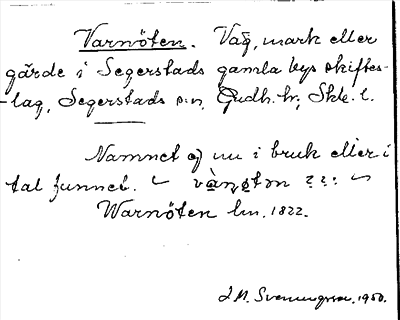 Varnöten. Väg, mark eller
gärde i Segerstads gamla bys skiftes-
-lag, Segerstads sn, Gudh. hr, Skbg. l.
Namnet ej nu i bruk eller i
tal funnet.
Warnöten lm. 1822.
J. M. Svennungsson. 1950.